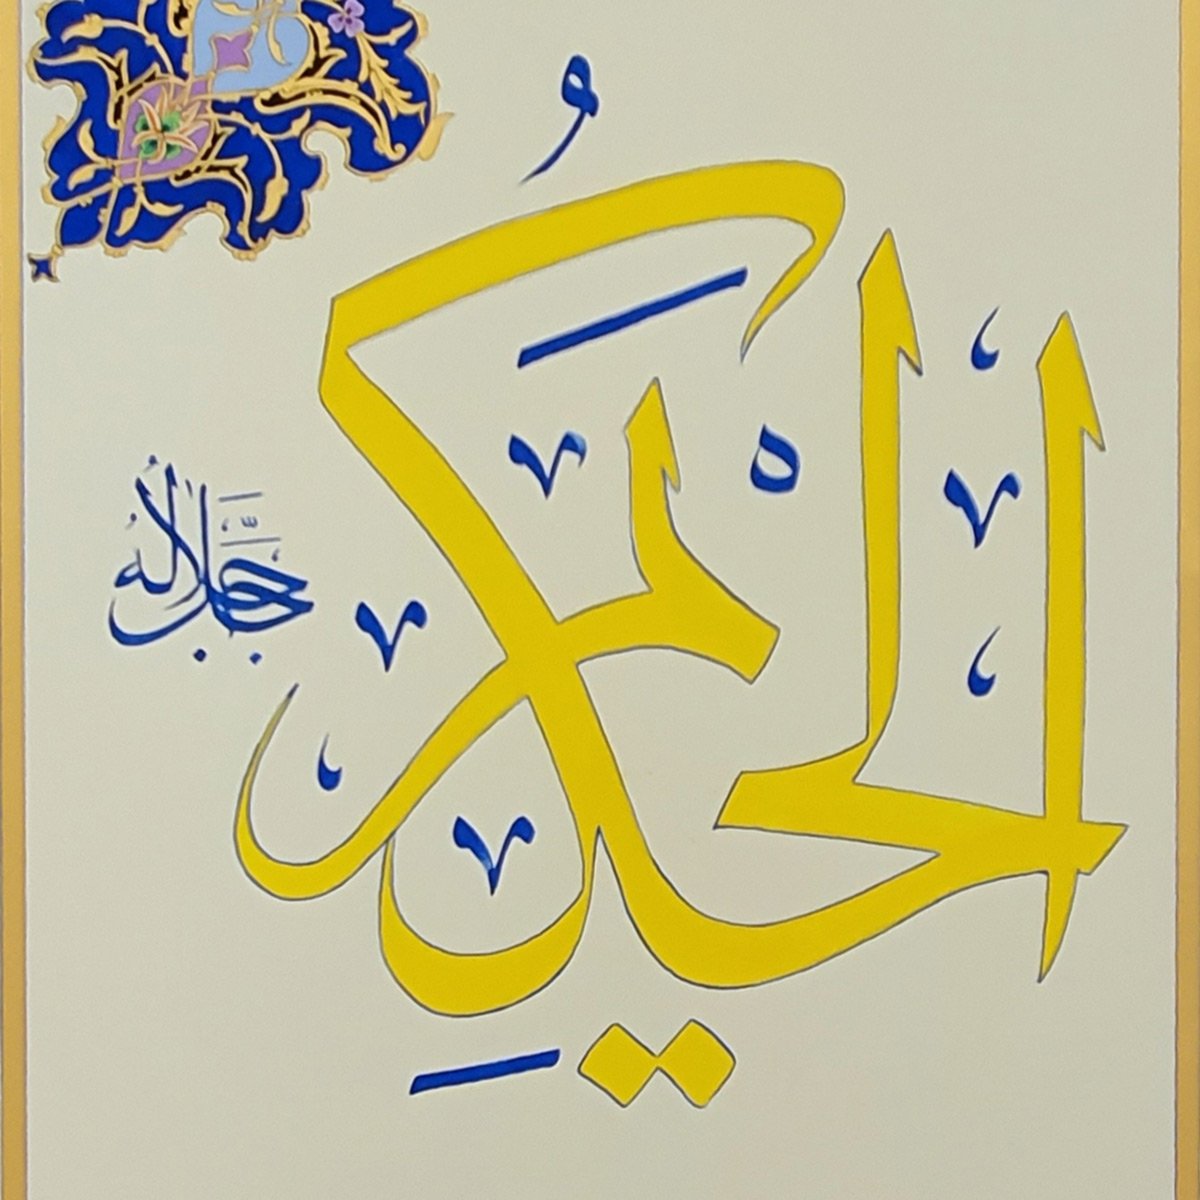 الْحَكِيمُ
جَلَّ جَلَالُهُ